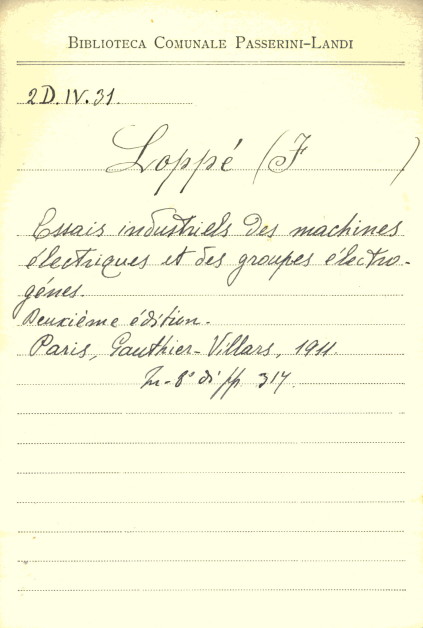 BIBLIOTECA COMUNALE PASSERINI-LANDI
2D.IV.31.
Loppé (F )
Essais industriels des machines
électriques et des groupes électro-
génes.
Deuxième édition.
Paris, Gauthier-Villars, 1911.
In-8° di pp 317.